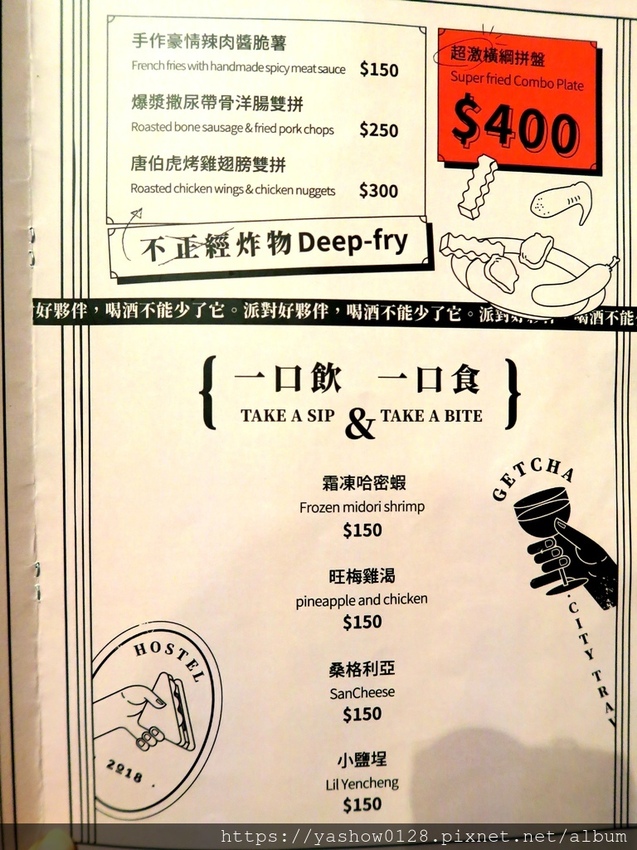 手作豪情辣肉醬脆薯
French fries with handmade spicy meat sauce $150
爆漿撒尿帶骨洋腸雙拼
Roasted bone sausage & fried pork chops $250
唐伯虎烤雞翅膀雙拼
Roasted chicken wings & chicken nuggets $300
超激橫綱拼盤
Super fried Combo Plate
$400
不正經炸物 Deep-fry
好夥伴，喝酒不能少了它。派對好夥伴，喝酒不能少了它。派對好夥伴，喝酒不能
一口飲 一口食
TAKE A SIP & TAKE A BITE
霜凍哈密蝦
Frozen midori shrimp
$150
旺梅雞渴
pineapple and chicken
$150
桑格利亞
SanCheese
$150
小鹽埕
Lil Yencheng
$150
GETCHA
·CITY TRAV
HOSTEL
· 2018 ·
https://yashow0128.pixnet.net/album